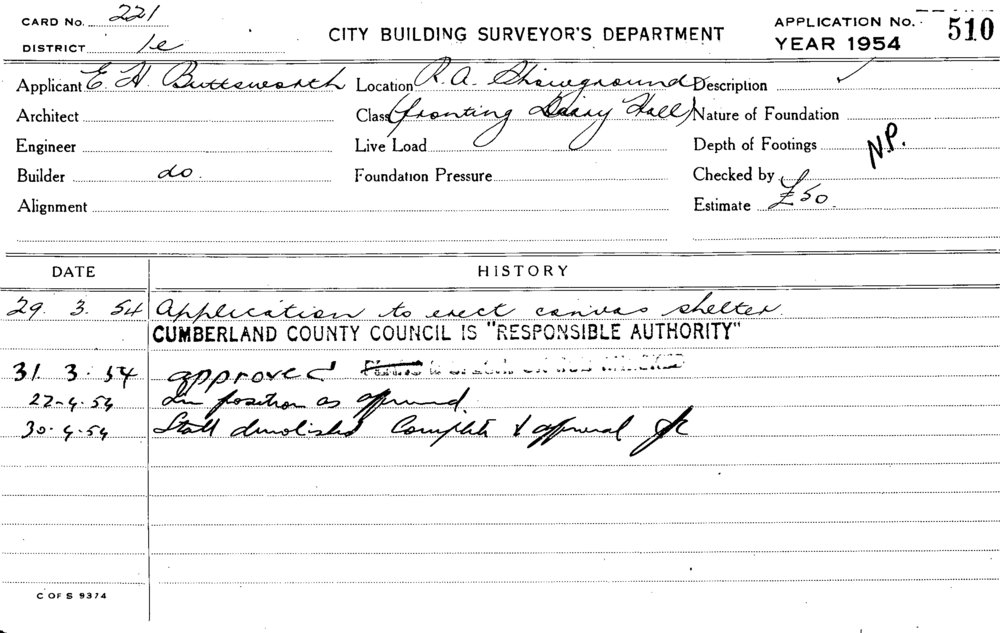 CARD No. 221
DISTRICT 1e
CITY BUILDING SURVEYOR'S DEPARTMENT
APPLICATION No. 510
YEAR 1954
Applicant E. H. Buttsworth Location R. A. Showground Description ✓
Architect Class (fronting Dairy Hall) Nature of Foundation
Engineer Live Load Depth of Footings N.P.
Builder do. Foundation Pressure Checked by
Alignment Estimate £50
DATE HISTORY
29. 3. 54 Application to erect canvas shelter
CUMBERLAND COUNTY COUNCIL IS "RESPONSIBLE AUTHORITY"
31. 3. 54 approved
22-4.54 In position as approved.
30.4.54 Stall demolished Complete & approval
C OF S 9374